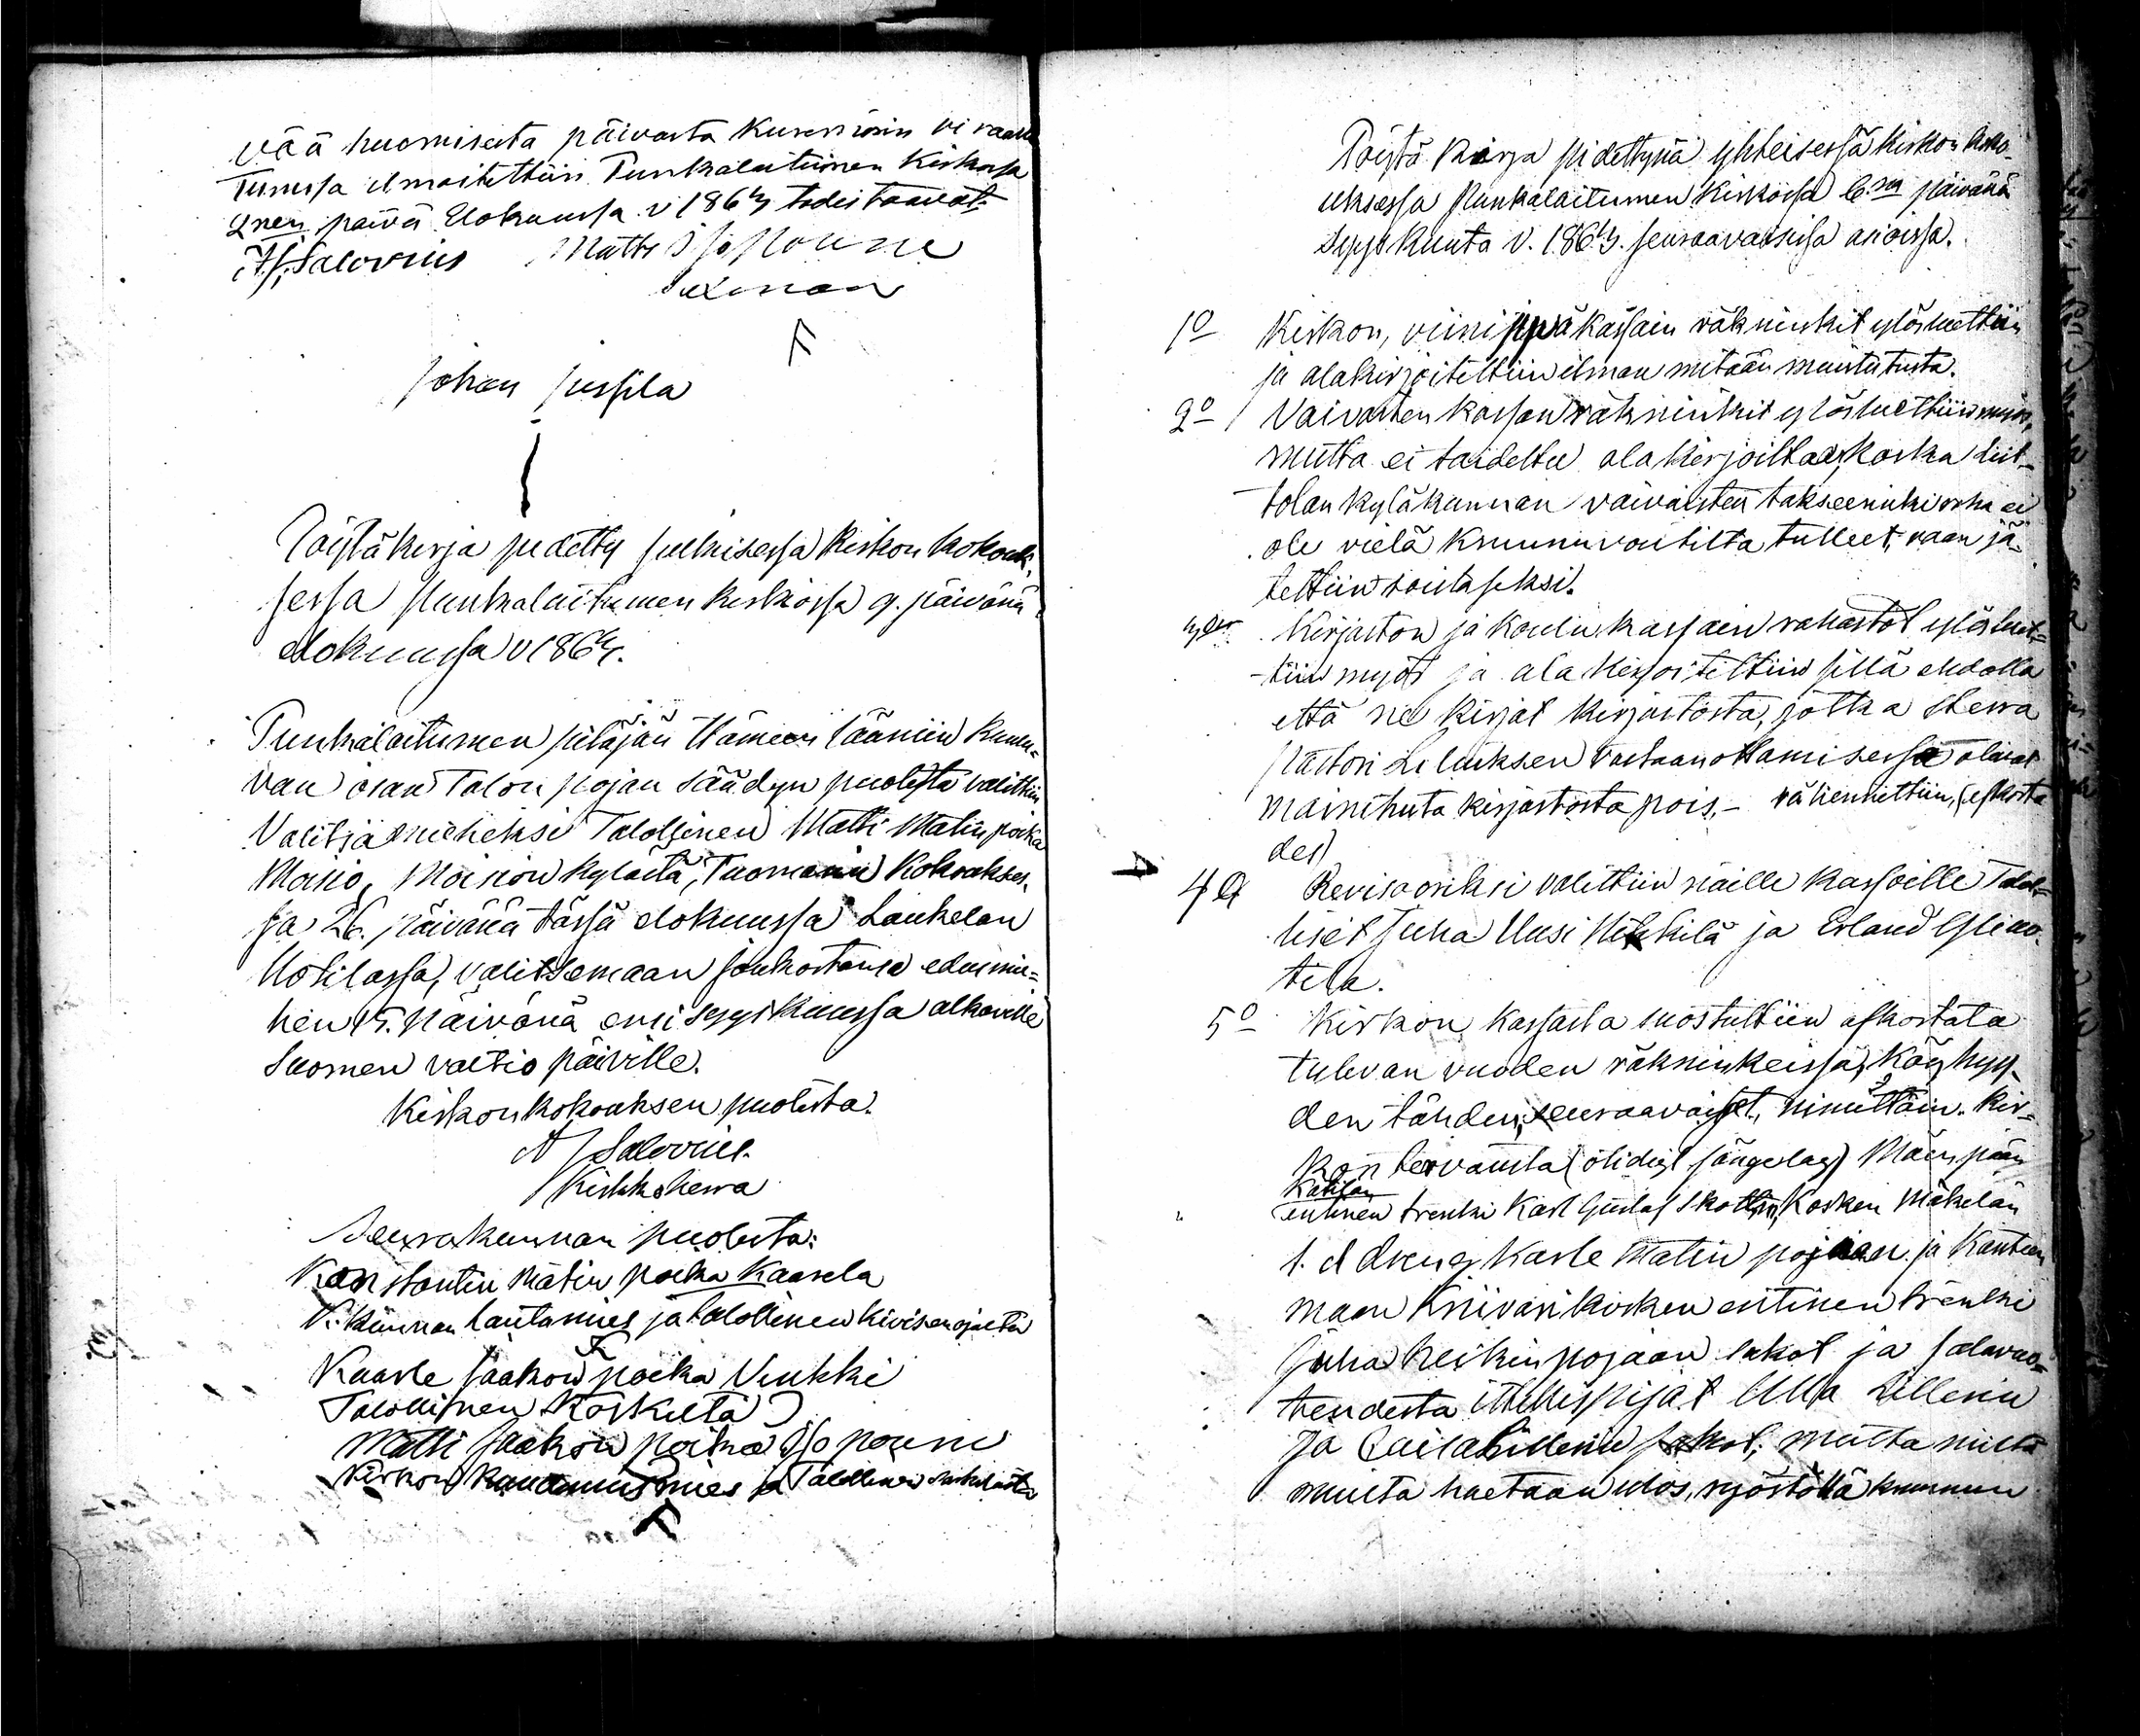 vää huomisesta päivästä
Tunussa ilmoitettiin Punkalaitumen Kirkossa
2nen päivä Elokuussa v 1863 todistaavat:
A J Salovius Matti Isopoune
Johan Jussila
Pöytäkirja pidetty julkisessa Kirkon kokouk-
sessa Punkalaitumen kirkossa 9. päivänä
elokuussa v 1863.
Punkalaitumen pitäjän Hämeen lääniin kuulu-
van osan Talon pojan säädyn puolesta valittiin
Valitsiamieheksi Talollinen Matti Matin poika
Moisio, Moision kylästä, Tuomarin kokoukses-
sa 26. päivänä tässä elokuussa Laukelan
Hotilassa, valitsemaan joukostansa edusmie-
hen 15. päivänä ensi syyskuussa alkaville
Suomen valtio päiville.
Kirkonkokouksen puolesta:
A J Salovius.
Kirkkoherra
Seurakunnan puolesta:
Konstantin Matin poika Kaarela
V. kunnan lautamies ja talollinen Kivisenojalta
Kaarle Jaakon poika Vinkki
Talollinen Koskelta
Matti Jaakon poika Isopouni
Kirkon kuudennusmies ja Talollinen Sarkilasta
Pöytä kirja pidettynä yhteisessä kirkon koko-
uksessa Punkalaitumen kirkossa 6na päivänä
Syyskuuta v. 1863. seuraavaisissa asioissa.
1o Kirkon, viini jyvä kassain räkninkit ylösluettiin
ja alakirjoitettiin ilman mitään muistutusta.
2o Vaivasten kassan räkninkit ylösluettiin myös,
mutta ei taidettu alakirjoittaa, koska Liit-
tolan kyläkunnan vaivaisten takseerinki raha ei
ole vielä kruununvoutilta tulleet, vaan jä-
tettiin toistaseksi.
3o Kirjaston ja koulu kassain rahastot ylösluet-
tiin myös ja ala kirjoitettiin sillä ehdolla
että ne kirjat kirjastosta, jotka Herra
Pastori Leliuksen vastaanottamisessa olivat
mainituta kirjastosta pois,- vähennettiin, (afkorta
des)
4o Revisooriksi valittiin näille kassoille Talol-
liset Juha Uusi Hihkilä ja Erland Ylino-
tila.
5o Kirkon kassasta suostuttiin afkortata
tulevan vuoden räkninkeissä, köyhyy-
den tähden, seuraavaiset, nimittäin: Kir-
kon tervausta (olidigt sängelag) Mäenpään
Katilan
entinen trenki Karl Gustaf Skottin, Kosken Mäkelän
f. d dreng Karle Matin pojaan ja Kanteen
maan Knivarikosken entinen trenki
Juha Heikin pojaan sakot ja salavuo-
teudesta itsellispijat Ulla Lillerin
ja Caisa Lillerin sakot; mutta
muita haetaan ulos, myöstöllä kruunun